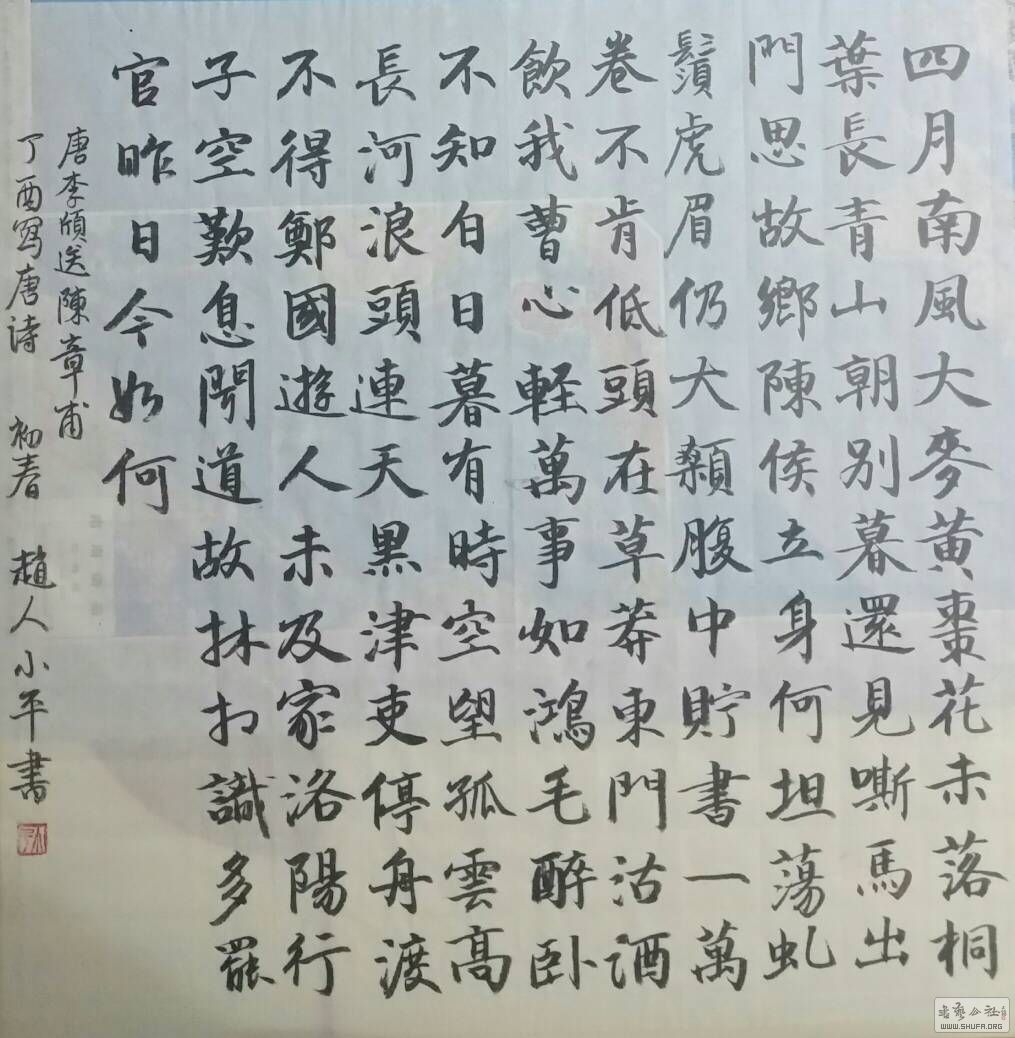 四月南風大麥黄棗花未落桐
葉長青山朝別暮還見嘶馬出
門思故鄉陳侯立身何坦蕩虬
鬚虎眉仍大顙腹中貯書一萬
卷不肯低頭在草莽東門沽酒
飲我曹心軽萬事如鴻毛醉卧
不知白日暮有時空望孤雲高
長河浪頭連天黑津吏停舟渡
不得鄭國遊人未及家洛陽行
子空歎息聞道故林相識多罷
官昨日今如何
唐李頎送陳章甫
丁酉寫唐詩 初春 趙人小平書
書藝公社
WWW.SHUFA.ORG